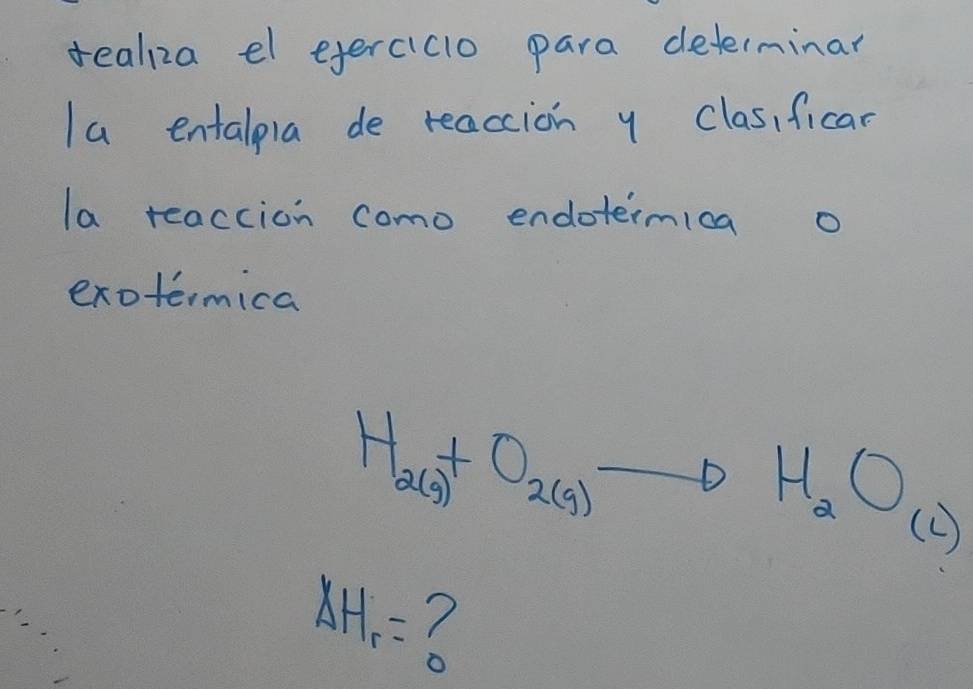 realiza el ejercicio para determinar
la entalpia de reacción y clasificar
la reacción como endotérmica o
exotérmica
H₂(g) + O₂(g) → H₂O(L)
ΔHr = ?